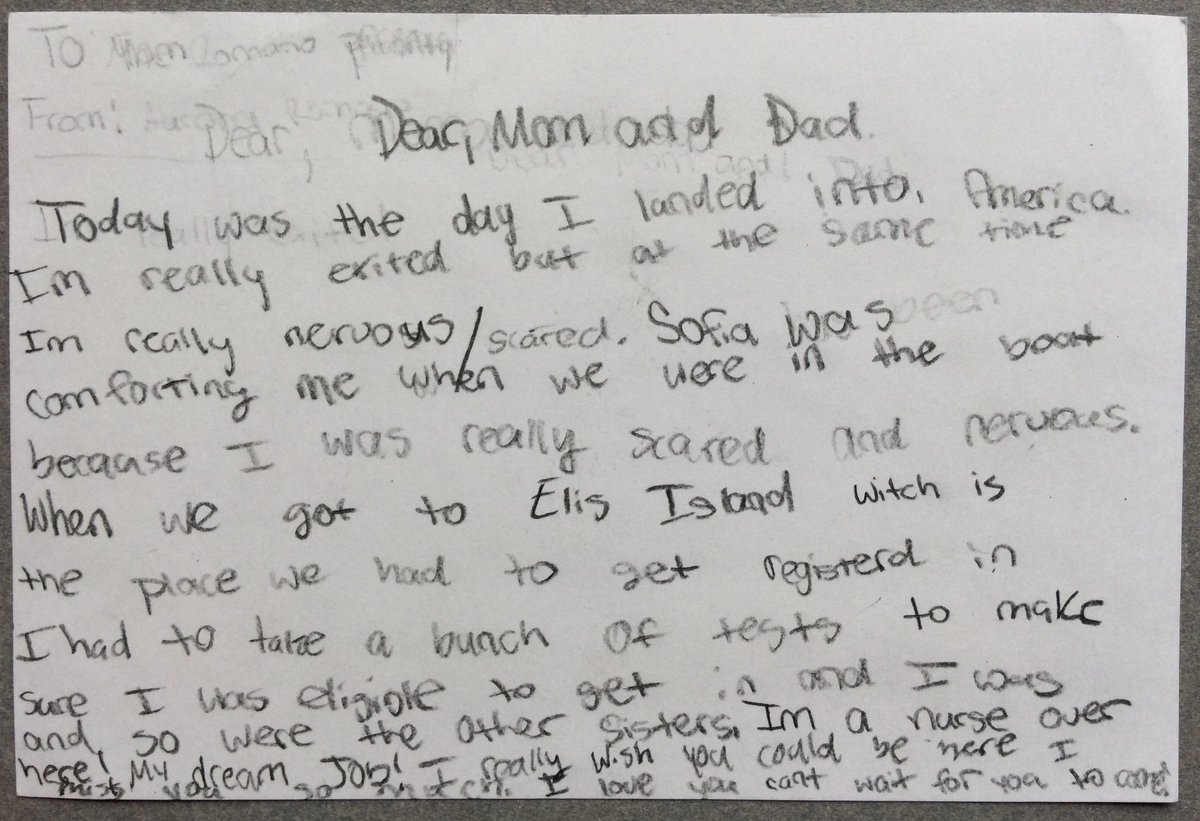 TO Romano
From: Romano
Dear,
Dear, Mom and Dad.
Today was the day I landed into. America.
Im really exited but at the same time
Im really nervous/scared. Sofia was
comforting me when we were in the boat
because I was really scared and nervous.
When we got to Elis Island witch is
the place we had to get registerd in
I had to take a bunch of tests to make
sure I was eligible to get in and I was
and, so were the other sisters. Im a nurse over
here! My dream Job! I really wish you could be here I
miss you so much. I love you cant wait for you to come!